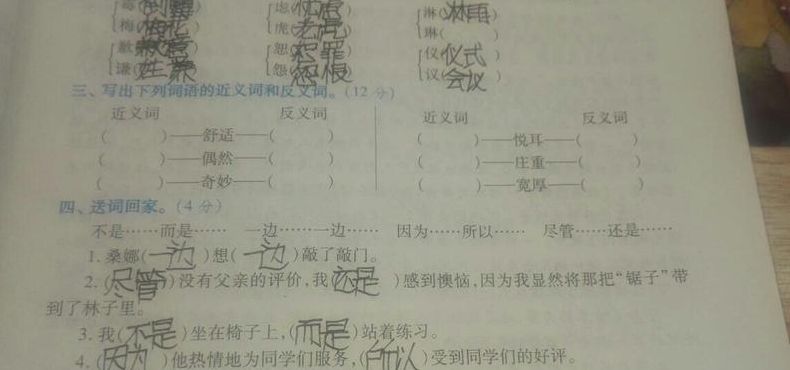 霉(倒霉) 虑( ) 淋(淋雨)
梅(梅花) 虎(老虎) 琳( )
歉(歉意) 恕(恕罪) 仪(仪式)
谦( ) 怨(怨恨) 议(会议)
三、写出下列词语的近义词和反义词。(12分)
近义词 反义词 近义词 反义词
( )——舒适——( ) ( )——悦耳——( )
( )——偶然——( ) ( )——庄重——( )
( )——奇妙——( ) ( )——宽厚——( )
四、送词回家。(4分)
不是……而是…… 一边……一边…… 因为……所以…… 尽管……还是……
1. 桑娜(一边)想(一边)敲了敲门。
2. (尽管)没有父亲的评价,我(还是)感到懊恼,因为我显然将那把“锯子”带
到了林子里。
3. 我(不是)坐在椅子上,(而是)站着练习。
4. (因为)他热情地为同学们服务,(所以)受到同学们的好评。